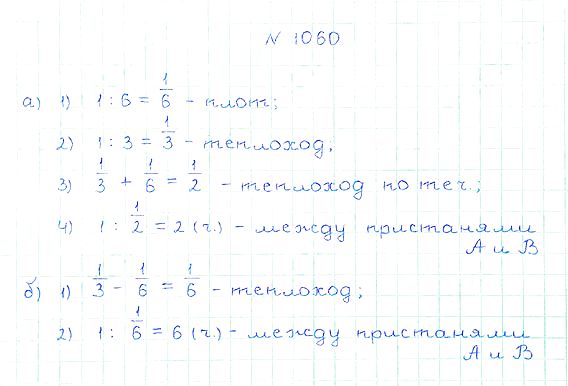 № 1060
а) 1) 1 : 6 = 1/6 - плот;
2) 1 : 3 = 1/3 - теплоход;
3) 1/3 + 1/6 = 1/2 - теплоход по теч.;
4) 1 : 1/2 = 2 (ч.) - между пристанями
А и В
б) 1) 1/3 - 1/6 = 1/6 - теплоход;
2) 1 : 1/6 = 6 (ч.) - между пристанями
А и В